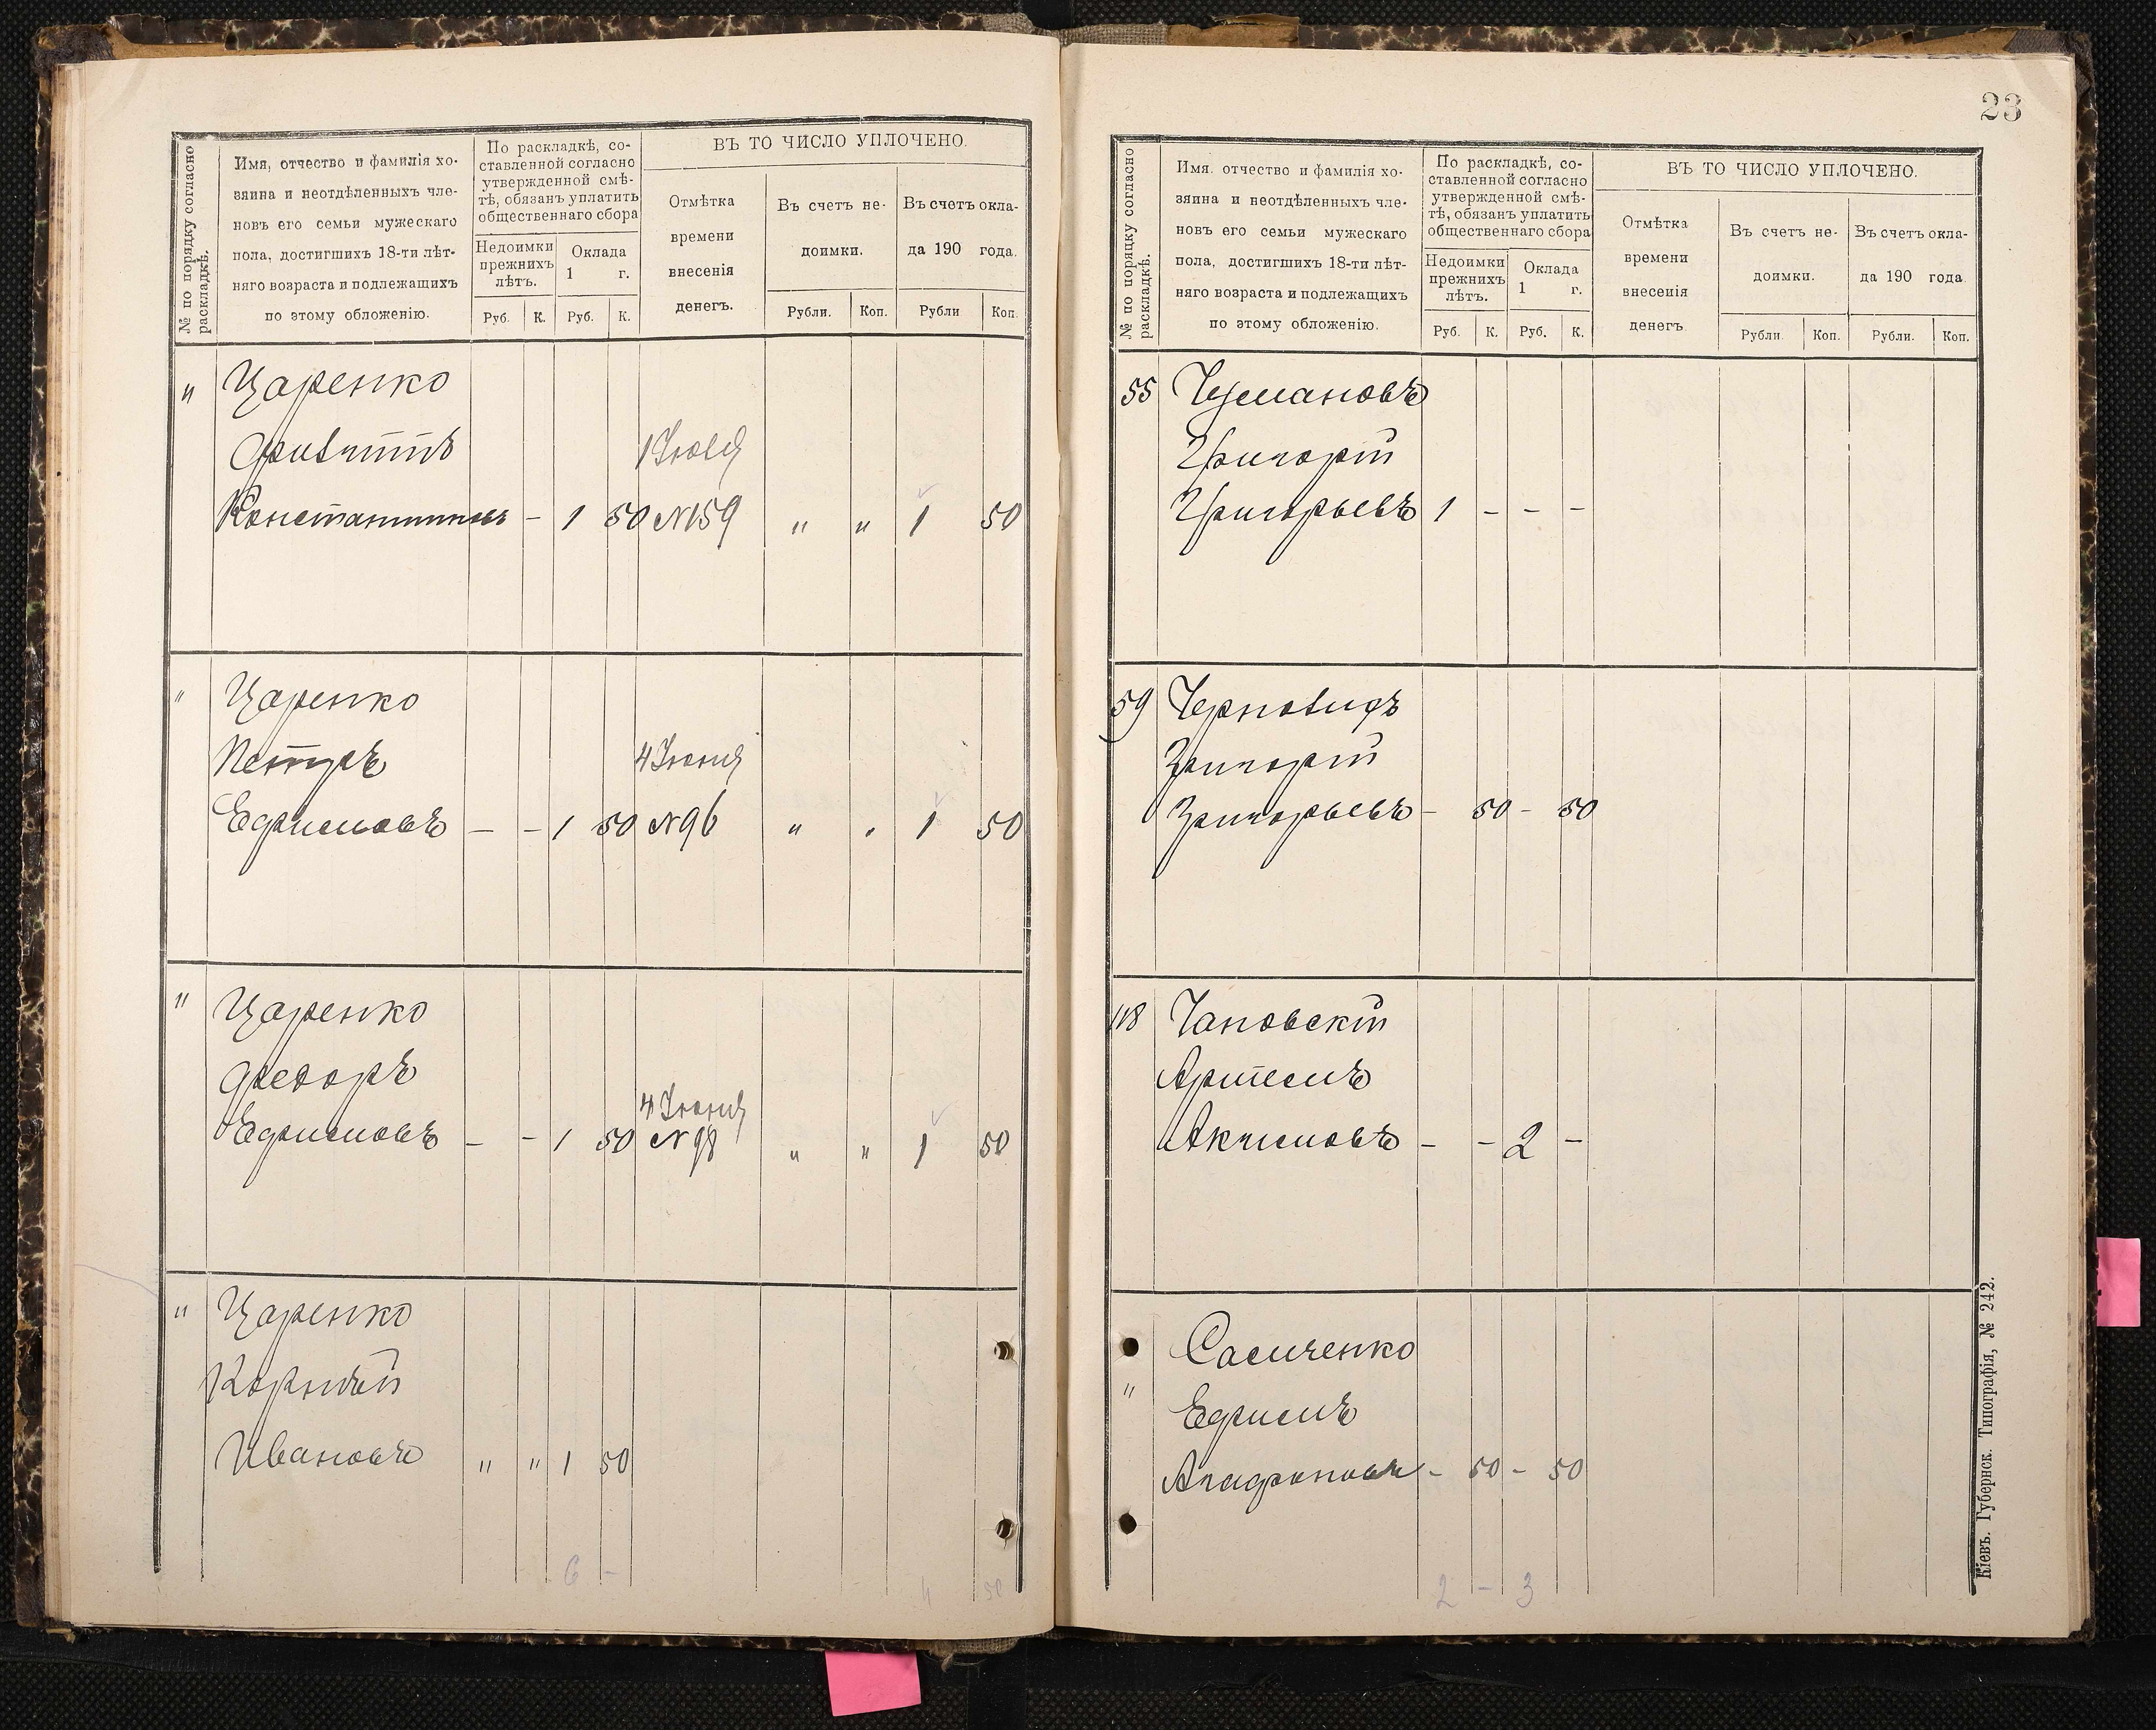 № по порядку согласно раскладкѣ.
Имя, отчество и фамилія хо-
зяина и неотдѣленныхъ чле-
новъ его семьи мужескаго
пола, достигшихъ 18-ти лѣт-
няго возраста и подлежащихъ
по этому обложенію.
По раскладкѣ, со-
ставленной согласно
утвержденной смѣ-
тѣ, обязанъ уплатить
общественнаго сбора
Недоимки
прежнихъ
лѣтъ.
Оклада
1 г.
Руб. К. Руб. К.
ВЪ ТО ЧИСЛО УПЛОЧЕНО.
Отмѣтка
времени
внесенія
денегъ.
Въ счетъ не-
доимки.
Рубли. Коп.
Въ счетъ окла-
да 190 года.
Рубли Коп.
" Царенко
Филиппъ 1 Іюля
Константиновъ - 1 50 №159 " " 1 50
" Царенко
Петръ 4 Іюня
Ефимовъ - - 1 50 №96 " " 1 50
" Царенко
Федоръ
4 Іюня
Ефимовъ - - 1 50 №98 " " 1 50
" Царенко
Корнѣй
Ивановъ " " 1 50
6 -
4 50
23
№ по порядку согласно раскладкѣ.
Имя. отчество и фамилія хо-
зяина и неотдѣленныхъ чле-
новъ его семьи мужескаго
пола, достигшихъ 18-ти лѣт-
няго возраста и подлежащихъ
по этому обложенію.
По раскладкѣ, со-
ставленной согласно
утвержденной смѣ-
тѣ, обязанъ уплатить
общественнаго сбора
Недоимки
прежнихъ
лѣтъ.
Оклада
1 г.
Руб. К. Руб. К.
ВЪ ТО ЧИСЛО УПЛОЧЕНО.
Отмѣтка
времени
внесенія
денегъ.
Въ счетъ не-
доимки.
Рубли. Коп.
Въ счетъ окла-
да 190 года
Рубли. Коп.
55 Чумановъ
Григорій
Григорьевъ 1 - - -
59 Черновидъ
Григорій
Григорьевъ - 50 - 50
118 Чановскій
Артемъ
Акимовъ - - 2 -
Самченко
" Ефимъ
Агафоновъ - 50 - 50
2 - 3
Кіевъ. Губернск. Типографія, № 242.